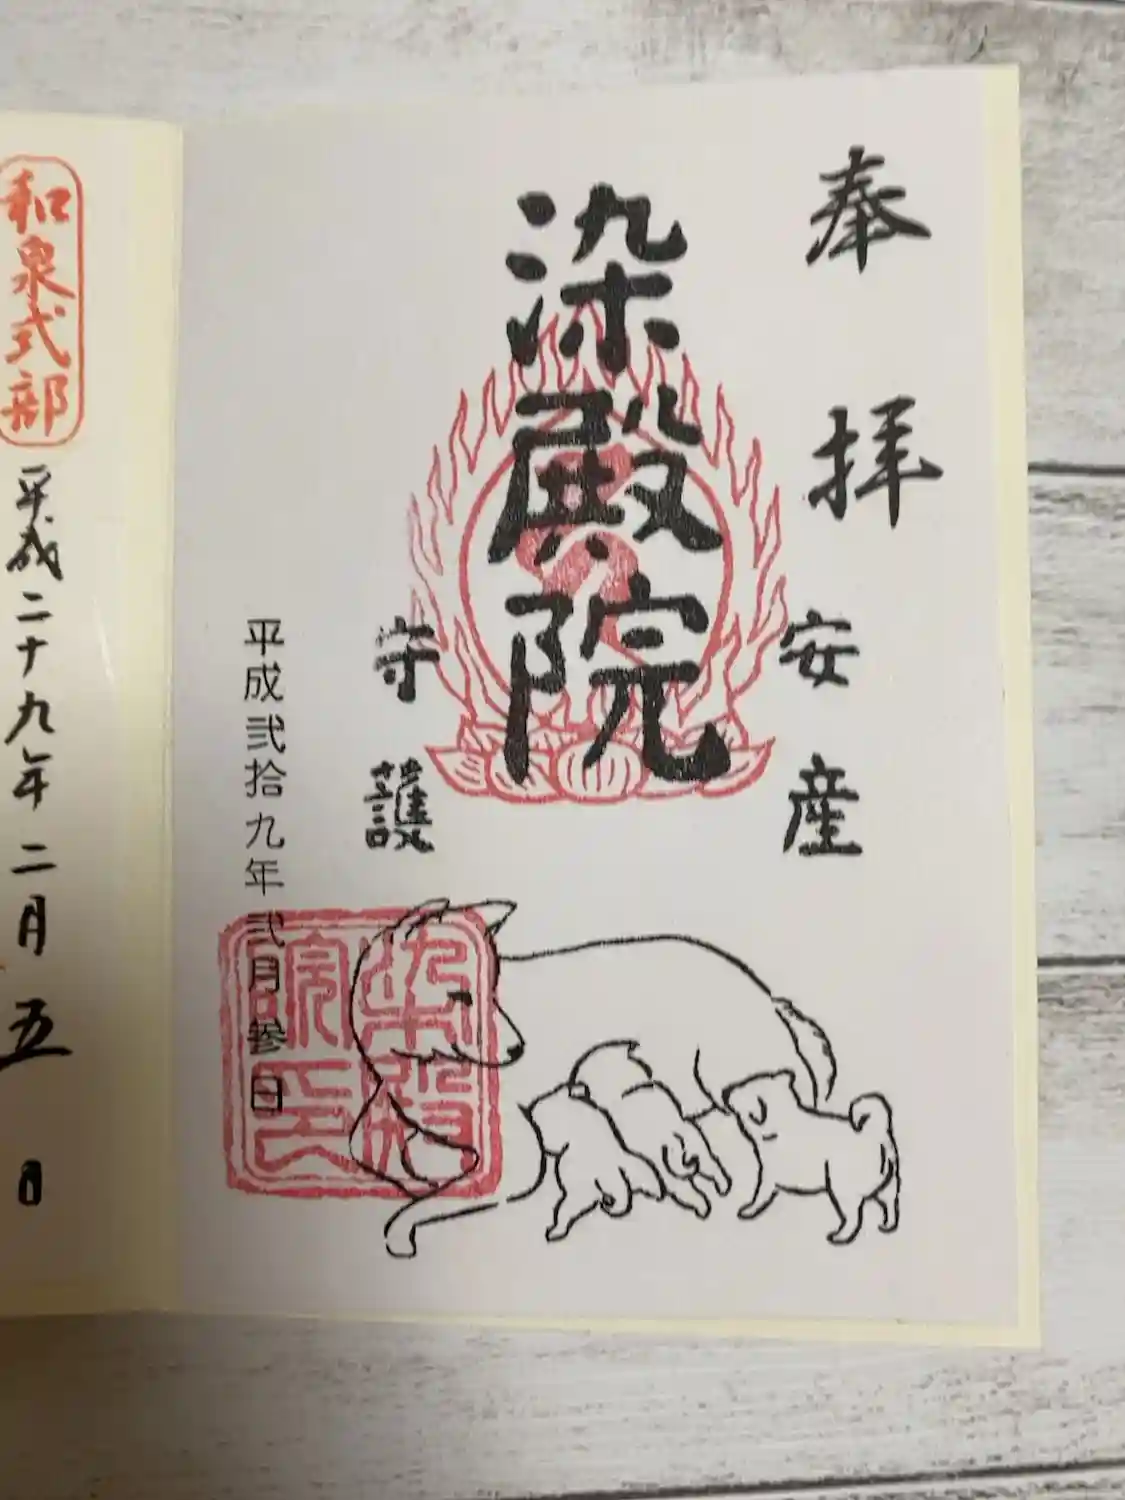 奉拝
安産
染殿院
守護
平成弐拾九年弐月参日
染殿
院印
和泉式部
平成二十九年二月五日